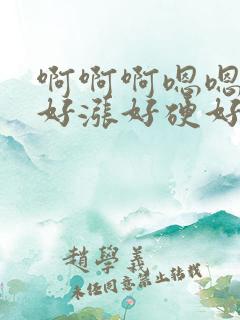 啊啊啊嗯嗯
好涨好硬好
赵學義
未经同意禁止转载